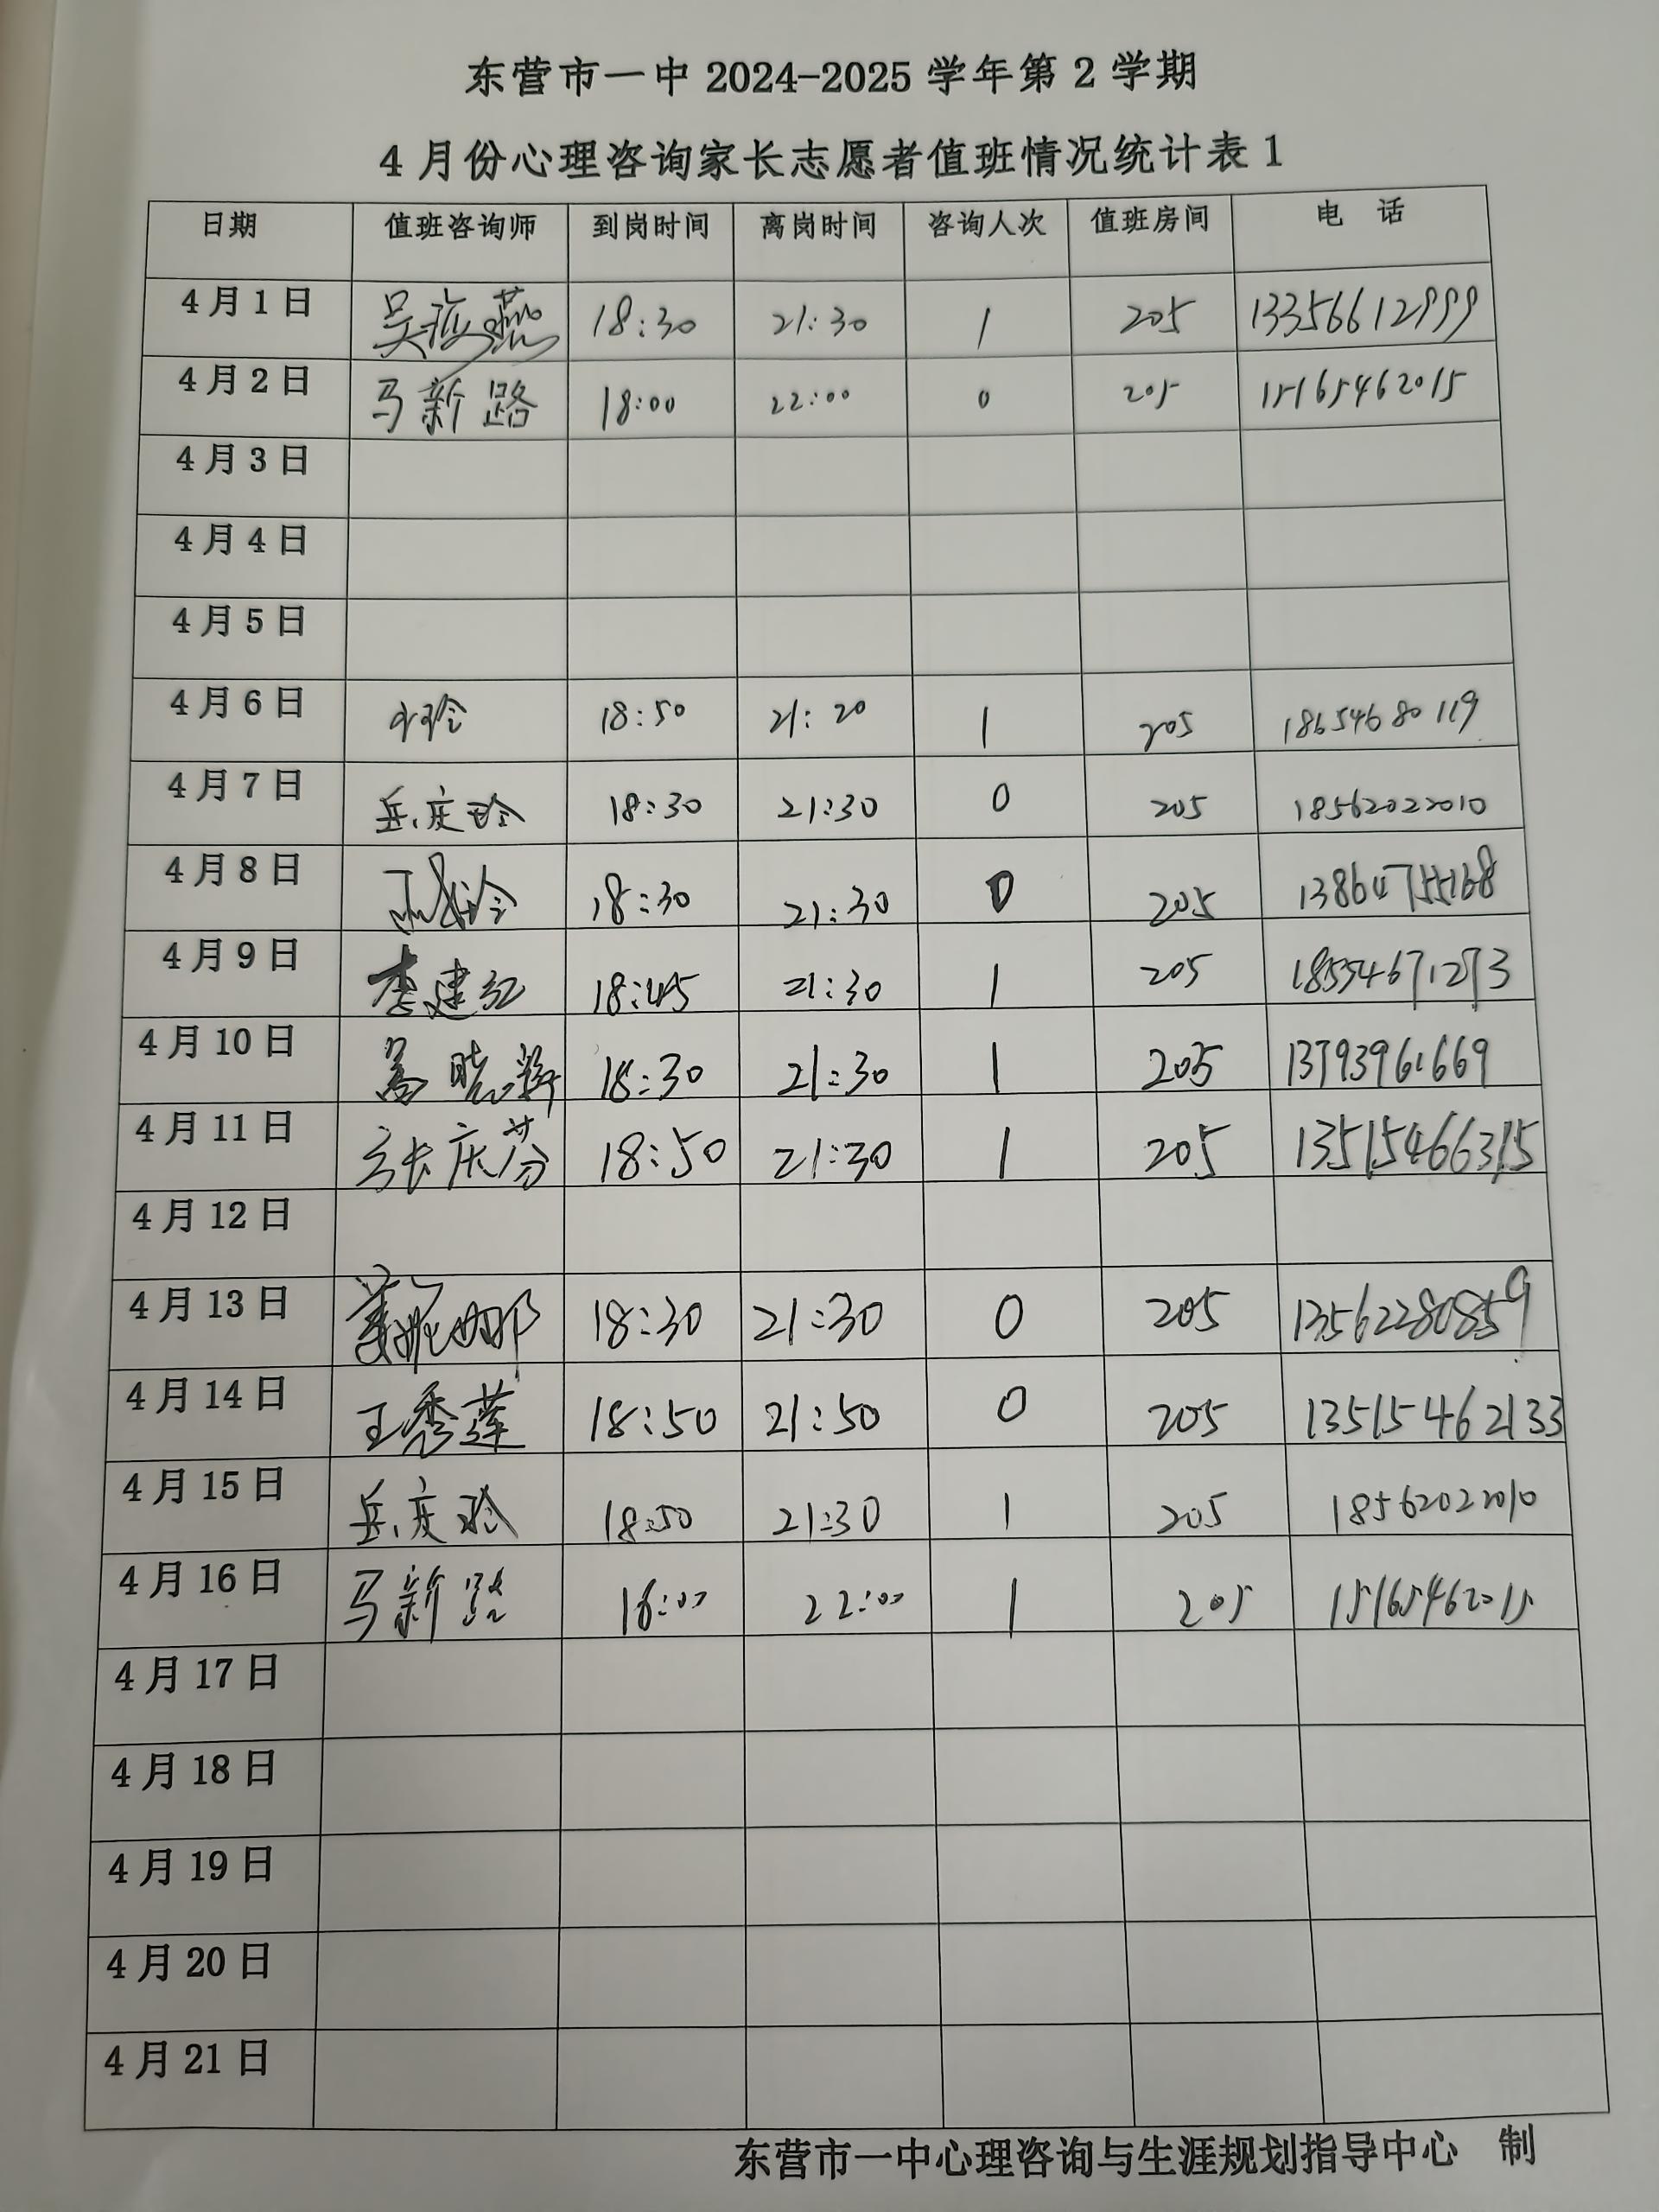 东营市一中 2024-2025 学年第 2 学期
4 月份心理咨询家长志愿者值班情况统计表 1
日期 值班咨询师 到岗时间 离岗时间 咨询人次 值班房间 电 话
4 月 1 日 吴海燕 18:30 21:30 1 205 13356612999
4 月 2 日 马新路 18:00 22:00 0 205 15165462015
4 月 3 日
4 月 4 日
4 月 5 日
4 月 6 日 18:50 21:20 1 205 18654680119
4 月 7 日 岳庆玲 18:30 21:30 0 205 18562022010
4 月 8 日 18:30 21:30 0 205 13864755168
4 月 9 日 李建红 18:45 21:30 1 205 18554671273
4 月 10 日 18:30 21:30 1 205 13793961669
4 月 11 日 张庆芬 18:50 21:30 1 205 13515466315
4 月 12 日
4 月 13 日 18:30 21:30 0 205 13562280859
4 月 14 日 王秀莲 18:50 21:50 0 205 13515462133
4 月 15 日 岳庆玲 18:50 21:30 1 205 18562022010
4 月 16 日 马新路 18:00 22:00 1 205 15165462015
4 月 17 日
4 月 18 日
4 月 19 日
4 月 20 日
4 月 21 日
东营市一中心理咨询与生涯规划指导中心 制